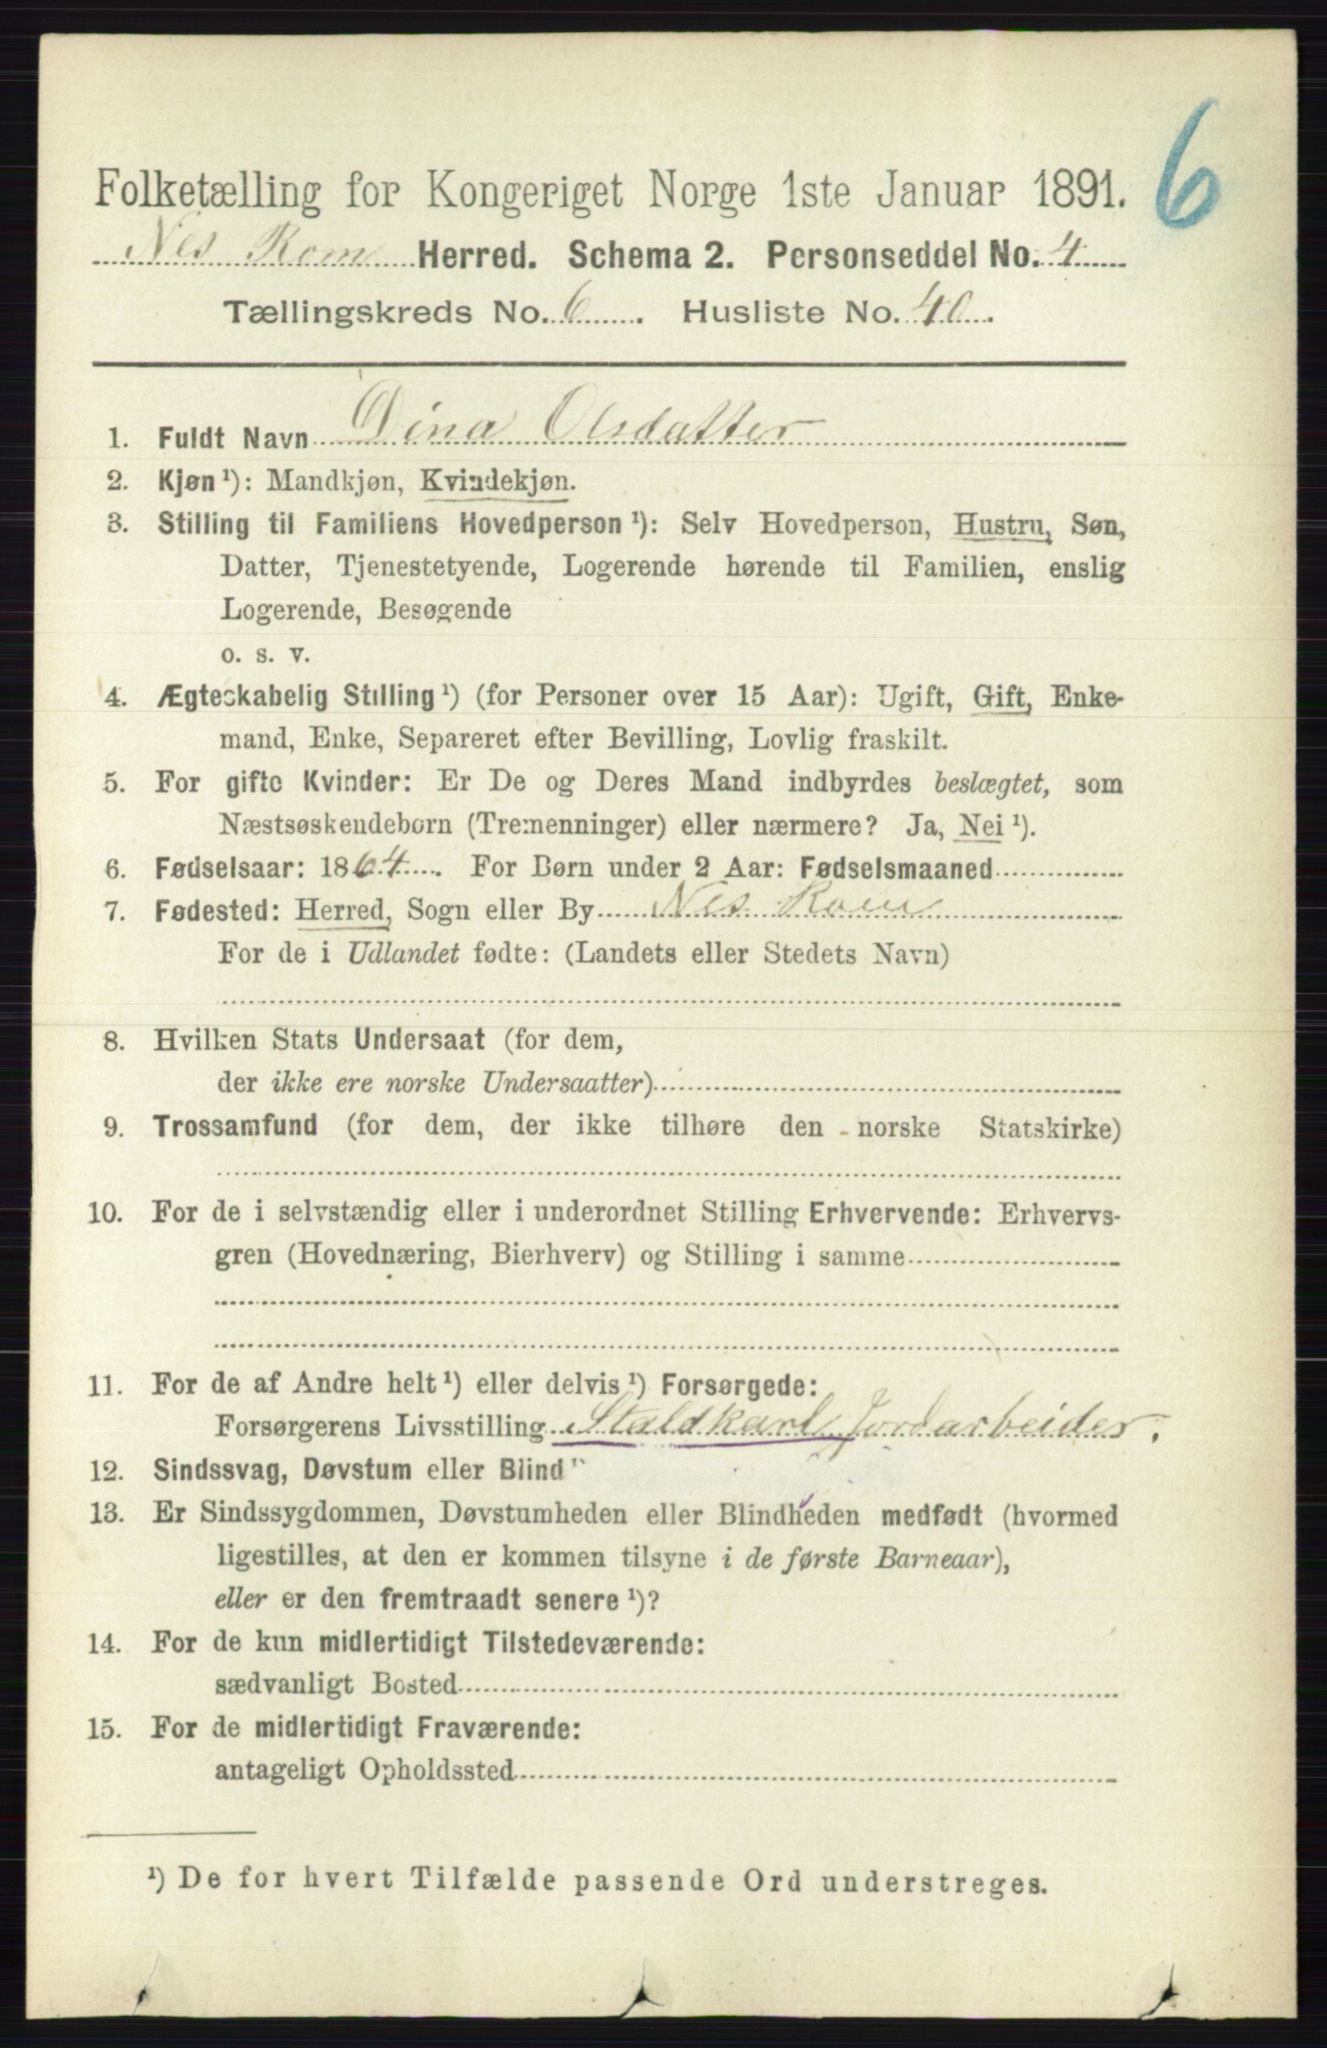 6
Folketælling for Kongeriget Norge 1ste Januar 1891.
Nes Rom Herred. Schema 2. Personseddel No. 4
Tællingskreds No. 6. Husliste No. 40.
1. Fuldt Navn Dina Olsdatter
2. Kjøn¹): Mandkjøn, Kvindekjøn.
3. Stilling til Familiens Hovedperson¹): Selv Hovedperson, Hustru, Søn,
Datter, Tjenestetyende, Logerende hørende til Familien, enslig
Logerende, Besøgende
o. s. v.
4. Ægteskabelig Stilling¹) (for Personer over 15 Aar): Ugift, Gift, Enke-
mand, Enke, Separeret efter Bevilling, Lovlig fraskilt.
5. For gifte Kvinder: Er De og Deres Mand indbyrdes beslægtet, som
Næstsøskendebørn (Tremenninger) eller nærmere? Ja, Nei¹).
6. Fødselsaar: 1864. For Børn under 2 Aar: Fødselsmaaned
7. Fødested: Herred, Sogn eller By Nes Rom
For de i Udlandet fødte: (Landets eller Stedets Navn)
8. Hvilken Stats Undersaat (for dem,
der ikke ere norske Undersaatter)
9. Trossamfund (for dem, der ikke tilhøre den norske Statskirke)
10. For de i selvstændig eller i underordnet Stilling Erhvervende: Erhvervs-
gren (Hovednæring, Bierhverv) og Stilling i samme
11. For de af Andre helt¹) eller delvis¹) Forsørgede:
Forsørgerens Livsstilling Staldkarl Jordarbeider.
12. Sindssvag, Døvstum eller Blind¹)
13. Er Sindssygdommen, Døvstumheden eller Blindheden medfødt (hvormed
ligestilles, at den er kommen tilsyne i de første Barneaar),
eller er den fremtraadt senere¹)?
14. For de kun midlertidigt Tilstedeværende:
sædvanligt Bosted
15. For de midlertidigt Fraværende:
antageligt Opholdssted
¹) De for hvert Tilfælde passende Ord understreges.